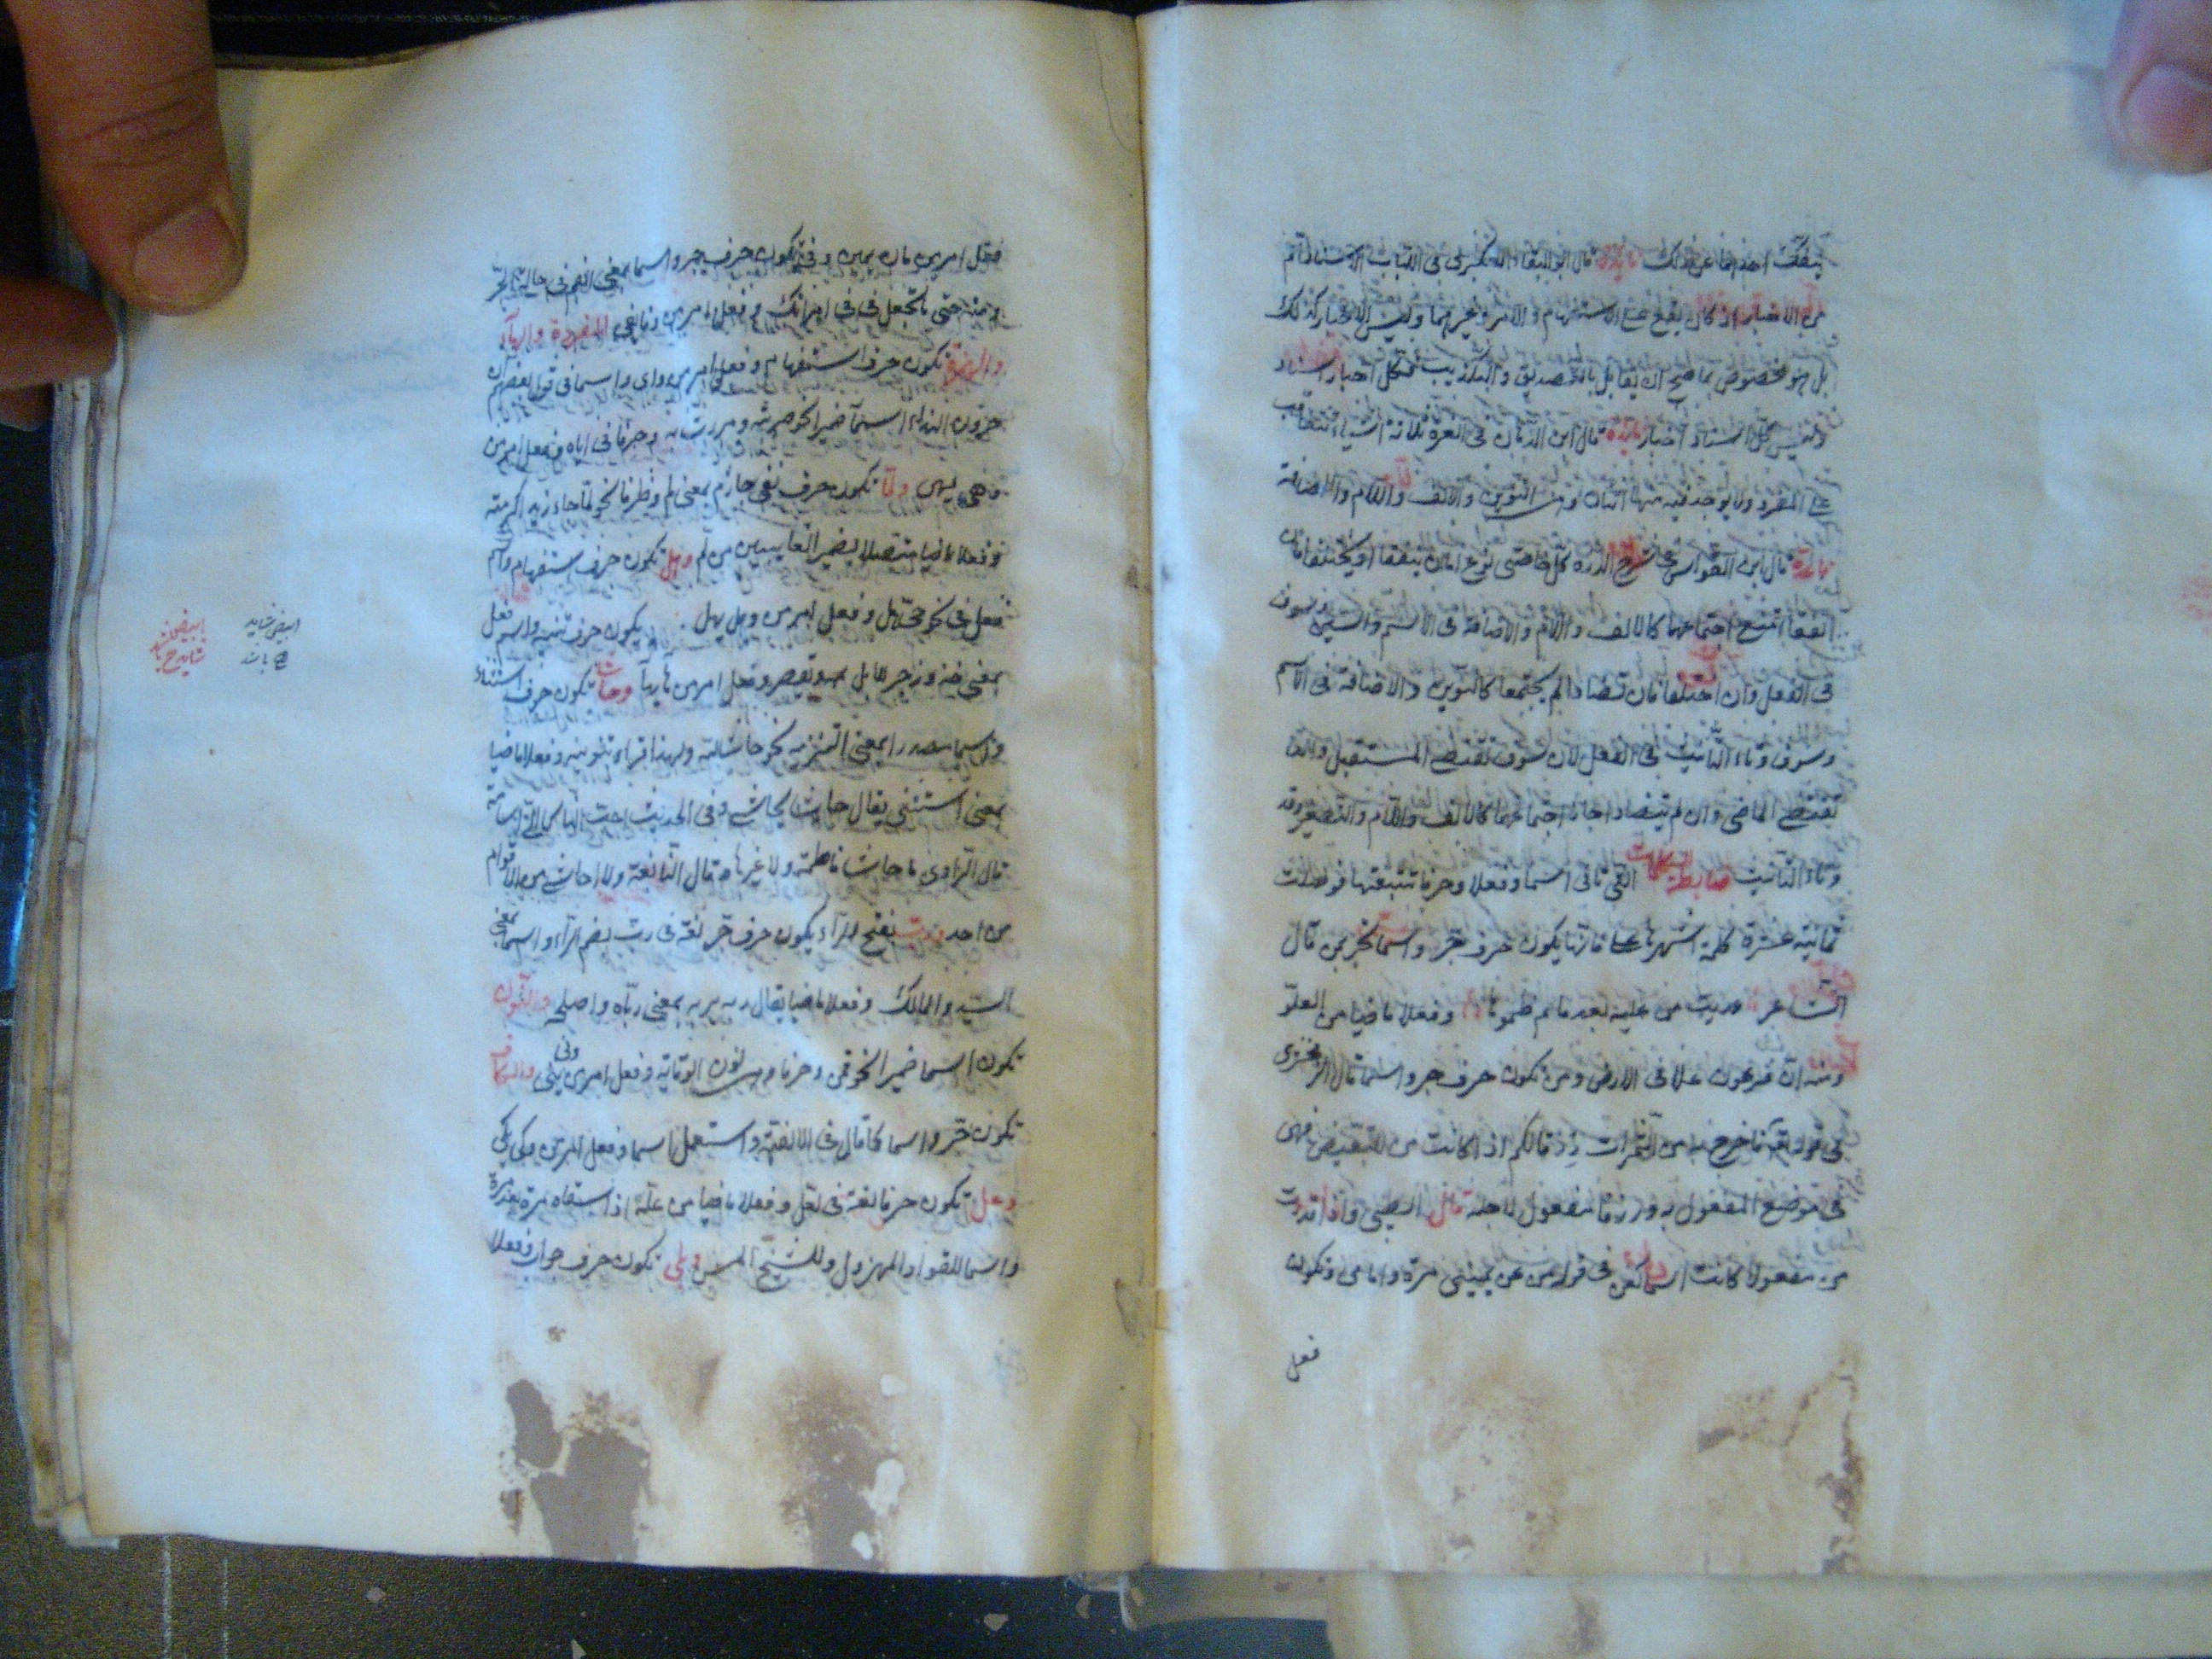 ينفك احدهما عن ذلك فايدة قال ابو البقاء العكبري في اللباب الاسناد اعم
من الاخبار اذ كان يقع على الاستفهام والامر وغيرهما وليس الاخبار كذلك
بل هو مخصوص بما صح ان يقابل بالتصديق والتكذيب فكل اخبار اسناد
وليس كل اسناد اخبار فايدة قال ابن الدهان في الغرة ثلاثة اشياء تتعاقب
على المفرد ولا يوجد فيه منها اثنان وهي التنوين والالف واللام والاضافة
فايدة قال ابن القواس في شرح الدرة كل خاصتى نوع اما ان يتفقا او يختلفا فان
اتفقا امتنع اجتماعهما كالالف واللام والاضافة في الاسم والسين وسوف
في الفعل وان اختلفا فان تضادا لم يجتمعا كالتنوين والاضافة في الاسم
وسوف وتاء التانيث في الفعل لان سوف تقتضي المستقبل والتاء
تقتضي الماضي وان لم يتضادا جاز اجتماعهما كالالف واللام والتصغير وقد
وتاء التانيث ضابطة الكلمات التي تاتي اسما وفعلا وحرفا تتبعتها فوجدت
ثمانية عشرة كلمة اشهرها على فانها يكون حرف جر واسما تجر بمن قال
الشاعر غديت من عليه بعد ما تم ظمؤها وفعلا ماضيا من العلو
ومنه ان فرعون علا في الارض ومن تكون حرف جر واسما قال الزمخشري
في قوله تع فاخرج به من الثمرات رزقا لكم اذا كانت من للتبعيض فهي
في موضع المفعول به ورزقا مفعول لاجله قال الطيبي واذا قدرت
من مفعولا كانت اسما كعن في قوله من عن يميني مرة وامامي وتكون
فعل
فعل امر من مان يمين وفي تكون حرف جر واسما بمعنى الفم في حالة الجر
ومنه حتى ما تجعل في في امراتك وفعل امر من وفا يفي الهمزة المفردة والهاء
والهمزة تكون حرف استفهام وفعل امر من واى واسما في قول بعضهم ان
حروف النداء اسماء ضميرا نحو ضربته ومررت به وحرفا في اياه وفعل امر من
وهى يهى ولما تكون حرف نفي جازم بمعنى لم وظرفا نحو لما جاء زيد اكرمته
وفعلا ماضيا متصلا بضمير الغايبين من لم وهل تكون حرف استفهام واسم
فعل في نحو حيهل وفعل امر من وهل يهل يكون حرف تنبيه واسم فعل
بمعنى خذ وزجر للابل يمد ويقصر وفعل امر من هاء يهاء وحاشا تكون حرف استثناء
واسما مصدرا بمعنى التنزيه نحو حاشا لله ولهذا قراء بتنوينه وفعلا ماضيا
بمعنى استثنى يقال حاشا يحاشى وفي الحديث احب الناس الي اسامة
قال الراوي ما حاشا فاطمة ولا غيرها وقال النابغة ولا احاشى من الاقوام
من احد ورب بفتح الراء يكون حرف جر لغة في رب بضم الراء واسما بمعنى
السيد والمالك وفعلا ماضيا يقال ربه يربه بمعنى رباه واصلحه والنون
تكون اسما ضميرا نحو قمن وحرفا وهي نون الوقاية وفعل امر من ونى يني والكاف
تكون حر واسما كما قال في الالفية واستعمل اسما وفعل امر من وكى يكي
وعل تكون حرفا لغة في لعل وفعلا ماضيا من عله اذا سقاه مرة بعد مرة
واسما للقراد المهزول وللشيخ المسن وبلى تكون حرف جواب وفعلا
ابيض شايد